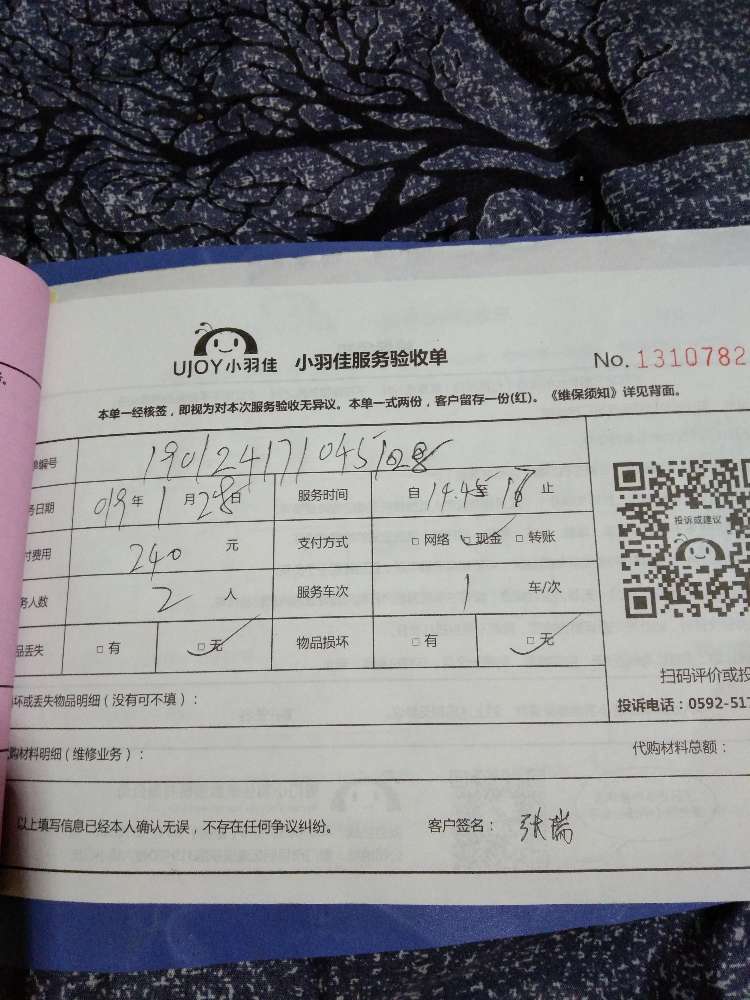 务。
UJOY小羽佳 小羽佳服务验收单 No. 1310782
本单一经核签，即视为对本次服务验收无异议。本单一式两份，客户留存一份(红)。《维保须知》详见背面。
单编号 190124171045128
务日期 019年1月28日 服务时间 自14.45至17止
付费用 240元 支付方式 □网络 □现金 □转账
务人数 2人 服务车次 1车/次
品丢失 □有 □无 物品损坏 □有 □无
投诉或建议
扫码评价或投
坏或丢失物品明细（没有可不填）：
投诉电话：0592-517
购材料明细（维修业务）： 代购材料总额：
以上填写信息已经本人确认无误，不存在任何争议纠纷。 客户签名： 张瑞